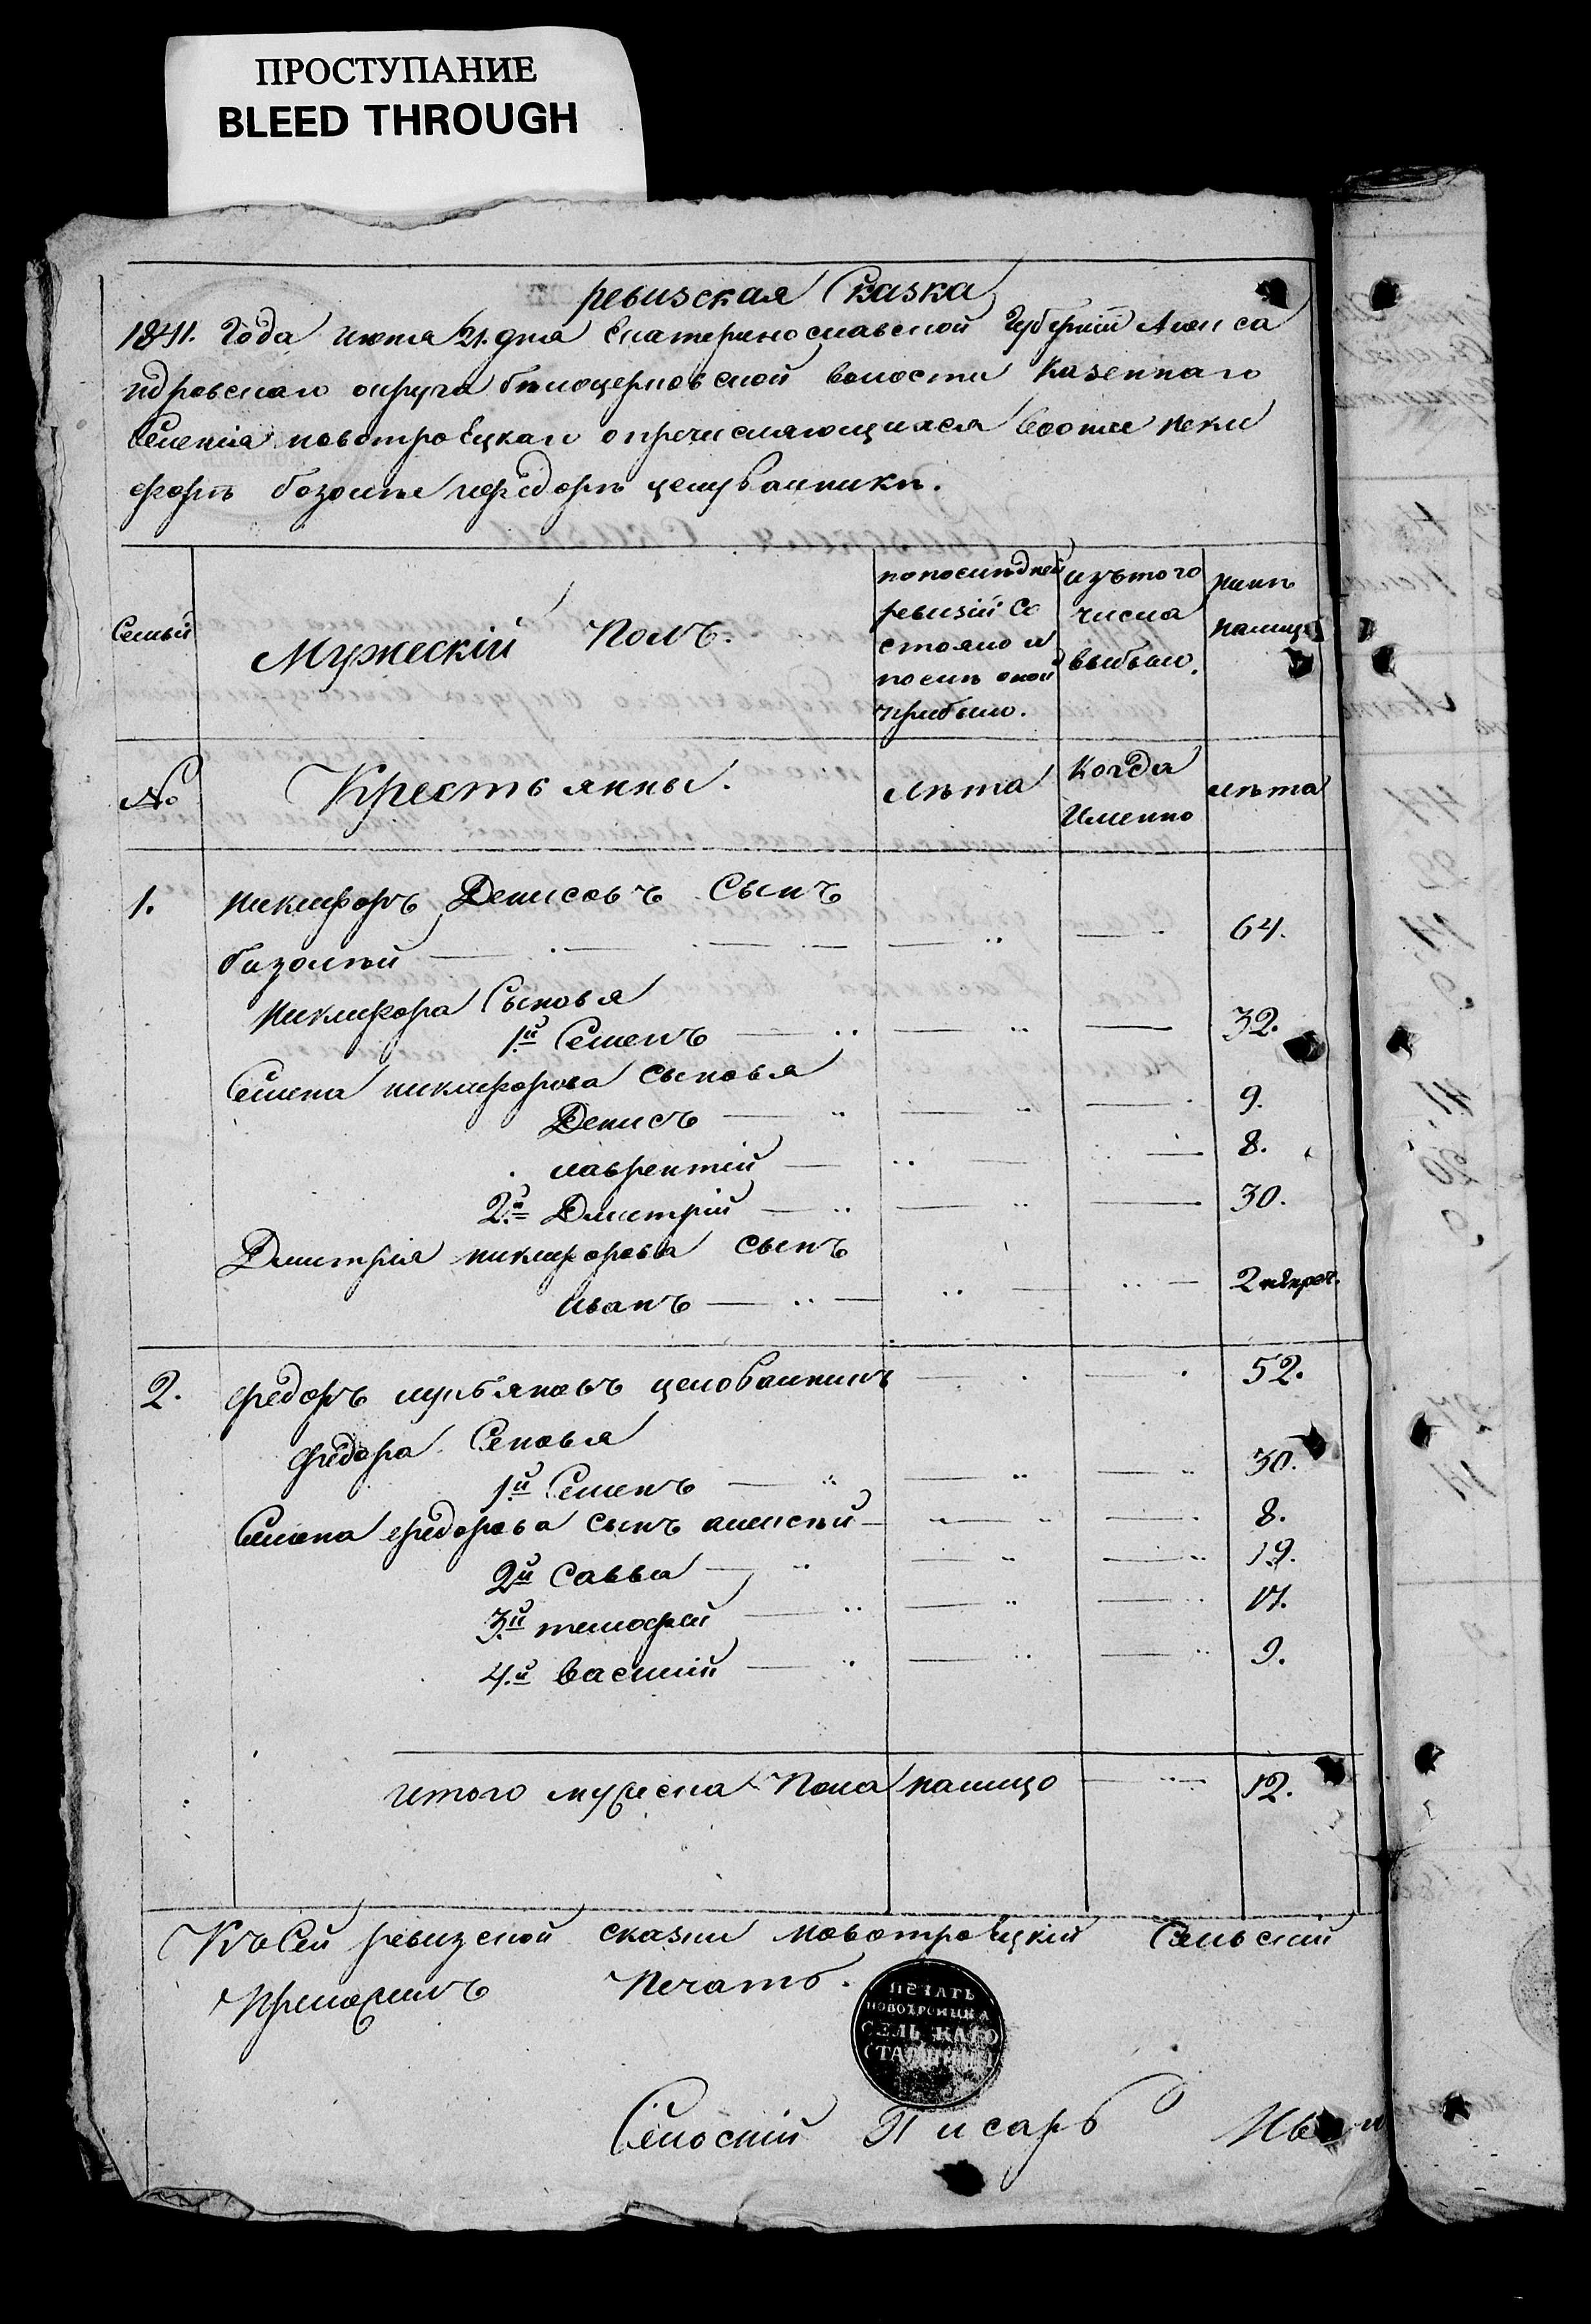 ПРОСТУПАНИЕ
BLEED THROUGH
ревизская Сказка
1841. Года июня 21. дня Екатеринославской Губернии Алекса
ндровскаго округа белоцерковской волости Казеннаго
Селения новотроецкаго о причисляющихся
форъ базолѣе Федоръ целувалникъ.
Семьи
Мужескій Полъ.
по последней
ревизіи Со
стояло и
после оной
прибыло.
изътого
числа
выбыло.
ныне
налицо
№
Крестьянны.
лѣта
когда
Именно
лѣта
1.
никифоръ Денисовъ Сынъ
базолѣй
64.
Никифора Сыновья
1.й Семенъ 32.
Семена никифорова сыновья
Денисъ 9.
лаврентій 8.
2.й Дмитрій 30.
Дмитрия никифорова сынъ
иванъ 2
2.
федоръ лукьяновъ целовалникъ 52.
федора Сеновья
1.й Семенъ 30.
Семена федорова сынъ алексѣй 8.
2й Савва 19.
3.й темофей 17.
4.й василій 9.
итого мужеска Пола налицо 12.
Къ Сей ревизской сказки новотроецкій Сельский
Приложилъ Печать.
ПЕЧАТЬ
СЕЛЬСКАГО
СТАРШИНЫ
Селоскій Писарь